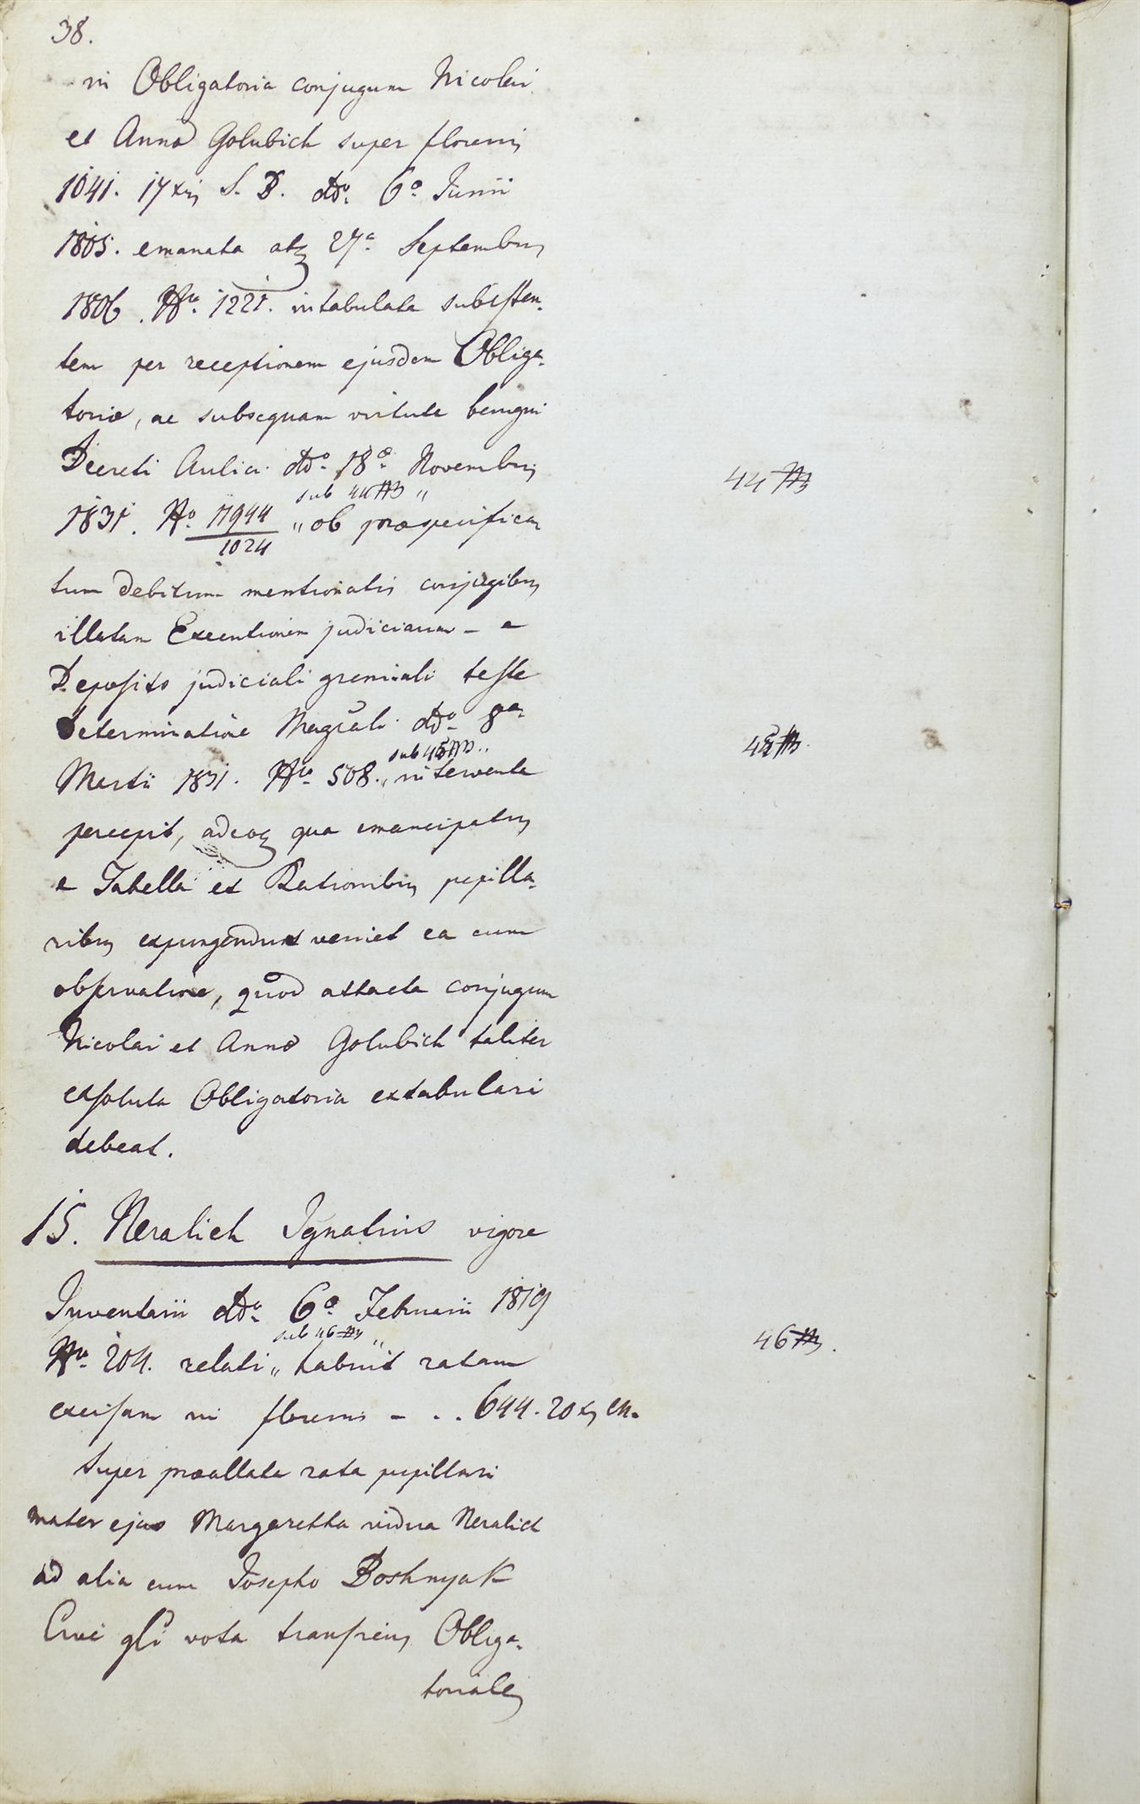 38.
in Obligatoria conjugum Nicolai
et Annæ Golubich super florenis
1041. 17 xris S. B. ddo. 6a. Junii
1805. emanata atq 27a. Septembris
1806. Nro. 1221. intabulata subversan-
tem per receptionem ejusdem Obliga-
toriæ, ac subsequam virtute benigni
Decreti Aulici ddo. 18a. Novembris
sub 44 ₶ „
44 ₶
1831. No. 11944/1024 „ ob præspecifica-
tum debitum mentionatis conjugibus
illatam Executionem judiciariam - e
Deposito judiciali gremiali teste
determinatione Magrali ddo. 8a.
sub 45 ₶ „
45 ₶.
Martii 1831. Nro 508. „ intervente
percepit, adeoq qua emancipatus
e Tabella et Rationibus pupilla-
ribus expungendus veniet ea cum
observatione, quod attacta conjugum
Nicolai et Annæ Golubich taliter
exsoluta Obligatoria extabulari
debeat.
15. Neralich Ignatius vigore
Inventarii ddo. 6a. Februarii 1819
sub 46 ₶ „
46 ₶.
Nro. 204. relati „ habuit ratam
excisam in florenis - . . 644. 20 xr
Super præallata rata pupillari
mater ejus Margaretha vidua Neralich
ad alia cum Josepho Boshnyak
Cive vota transiens Obliga-
toriales